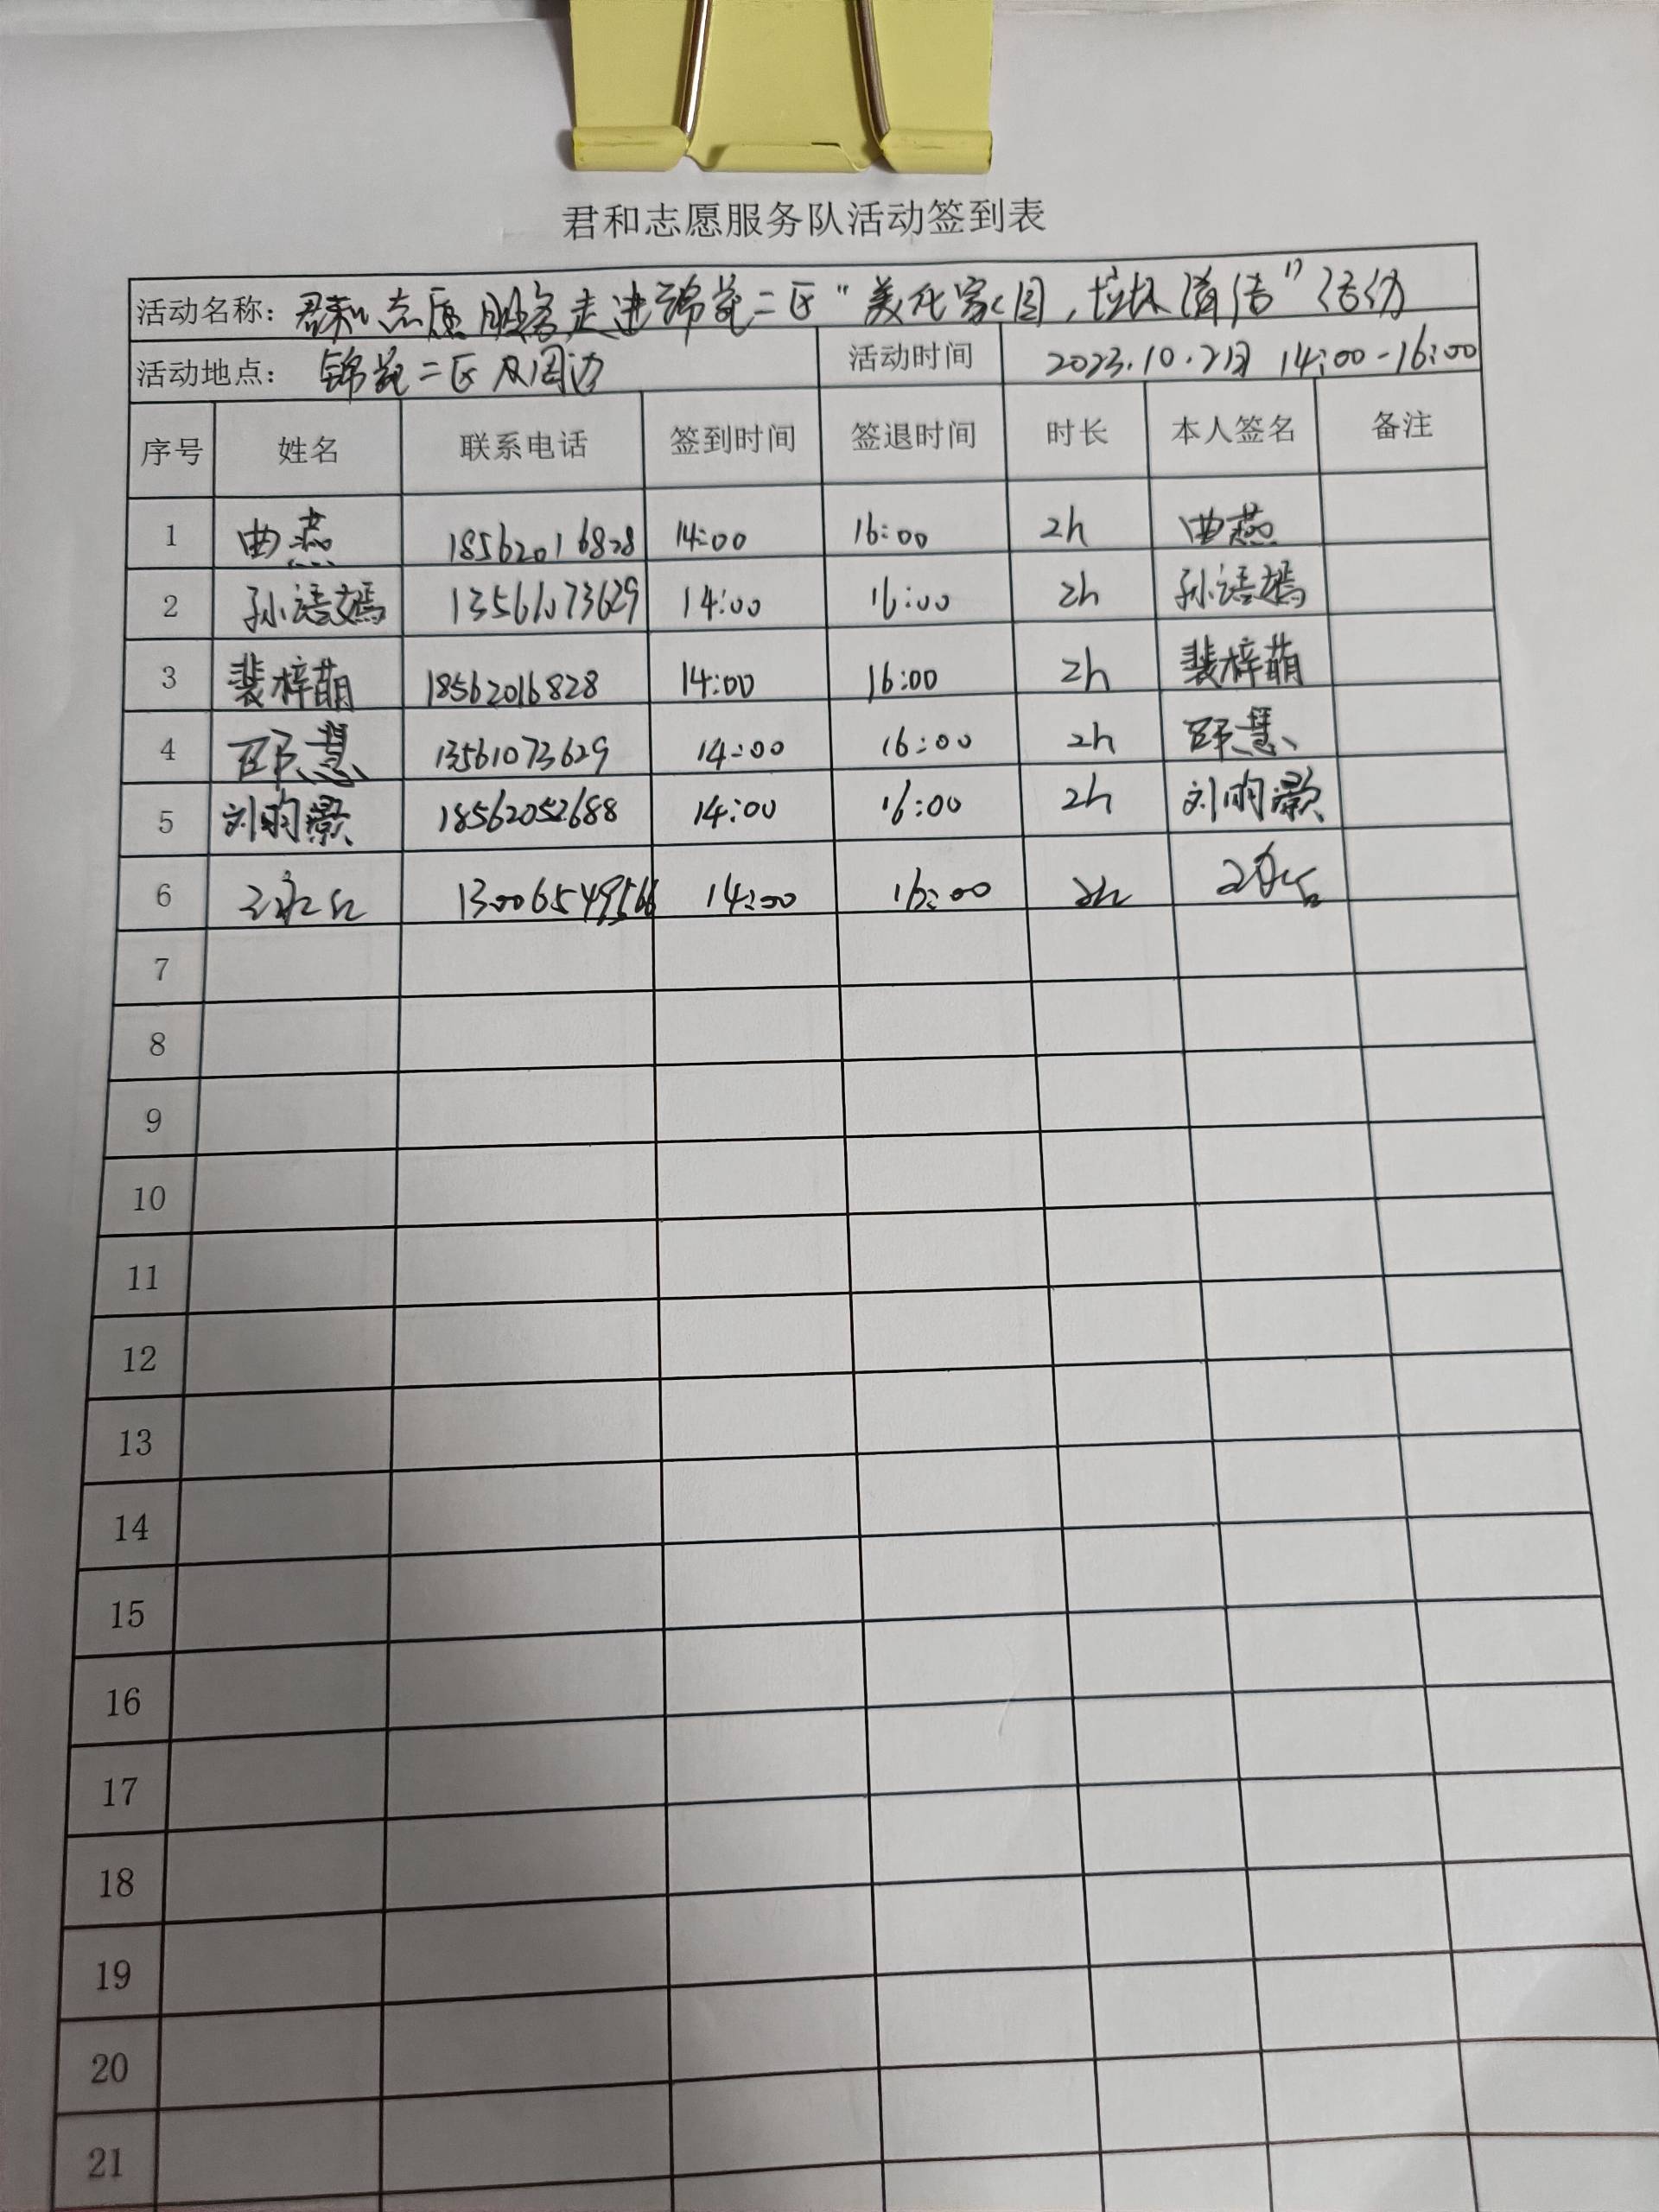 君和志愿服务队活动签到表
活动名称: 君和志愿服务走进锦苑二区"美化家园,垃圾清洁"活动
活动地点: 锦苑二区及周边 活动时间 2023.10.21日 14:00-16:00
序号 姓名 联系电话 签到时间 签退时间 时长 本人签名 备注
1 曲燕 18562016828 14:00 16:00 2h 曲燕
2 孙语嫣 13561073629 14:00 16:00 2h 孙语嫣
3 裴梓萌 18562016828 14:00 16:00 2h 裴梓萌
4 慧 13561073629 14:00 16:00 2h 慧
5 刘明灏 18562052688 14:00 16:00 2h 刘明灏
6 13006549566 14:00 16:00 2h
7
8
9
10
11
12
13
14
15
16
17
18
19
20
21